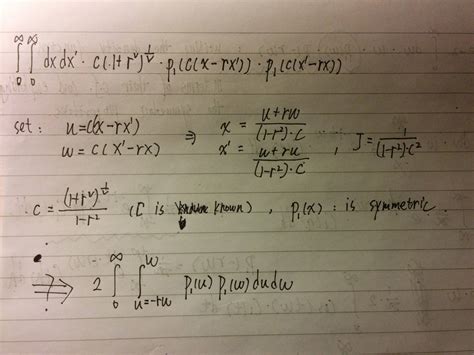 ∫₀^∞ ∫₀^∞ dx dx' · C(1+r²)^½ · p₁(C(x-rx')) · p₁(C(x'-rx))
set : u=C(x-rx') ⇒ x = (u+rw)/((1-r²)·C)
w = C(x'-rx) x' = (w+ru)/((1-r²)·C) , J = 1/((1-r²)·C²)
· C = (1+r²)^½/(1-r²) (C is known) , p₁(x) : is symmetric.
⇒ 2 ∫₀^∞ ∫_{u=-rw}^{w} p₁(u) p₁(w) du dw